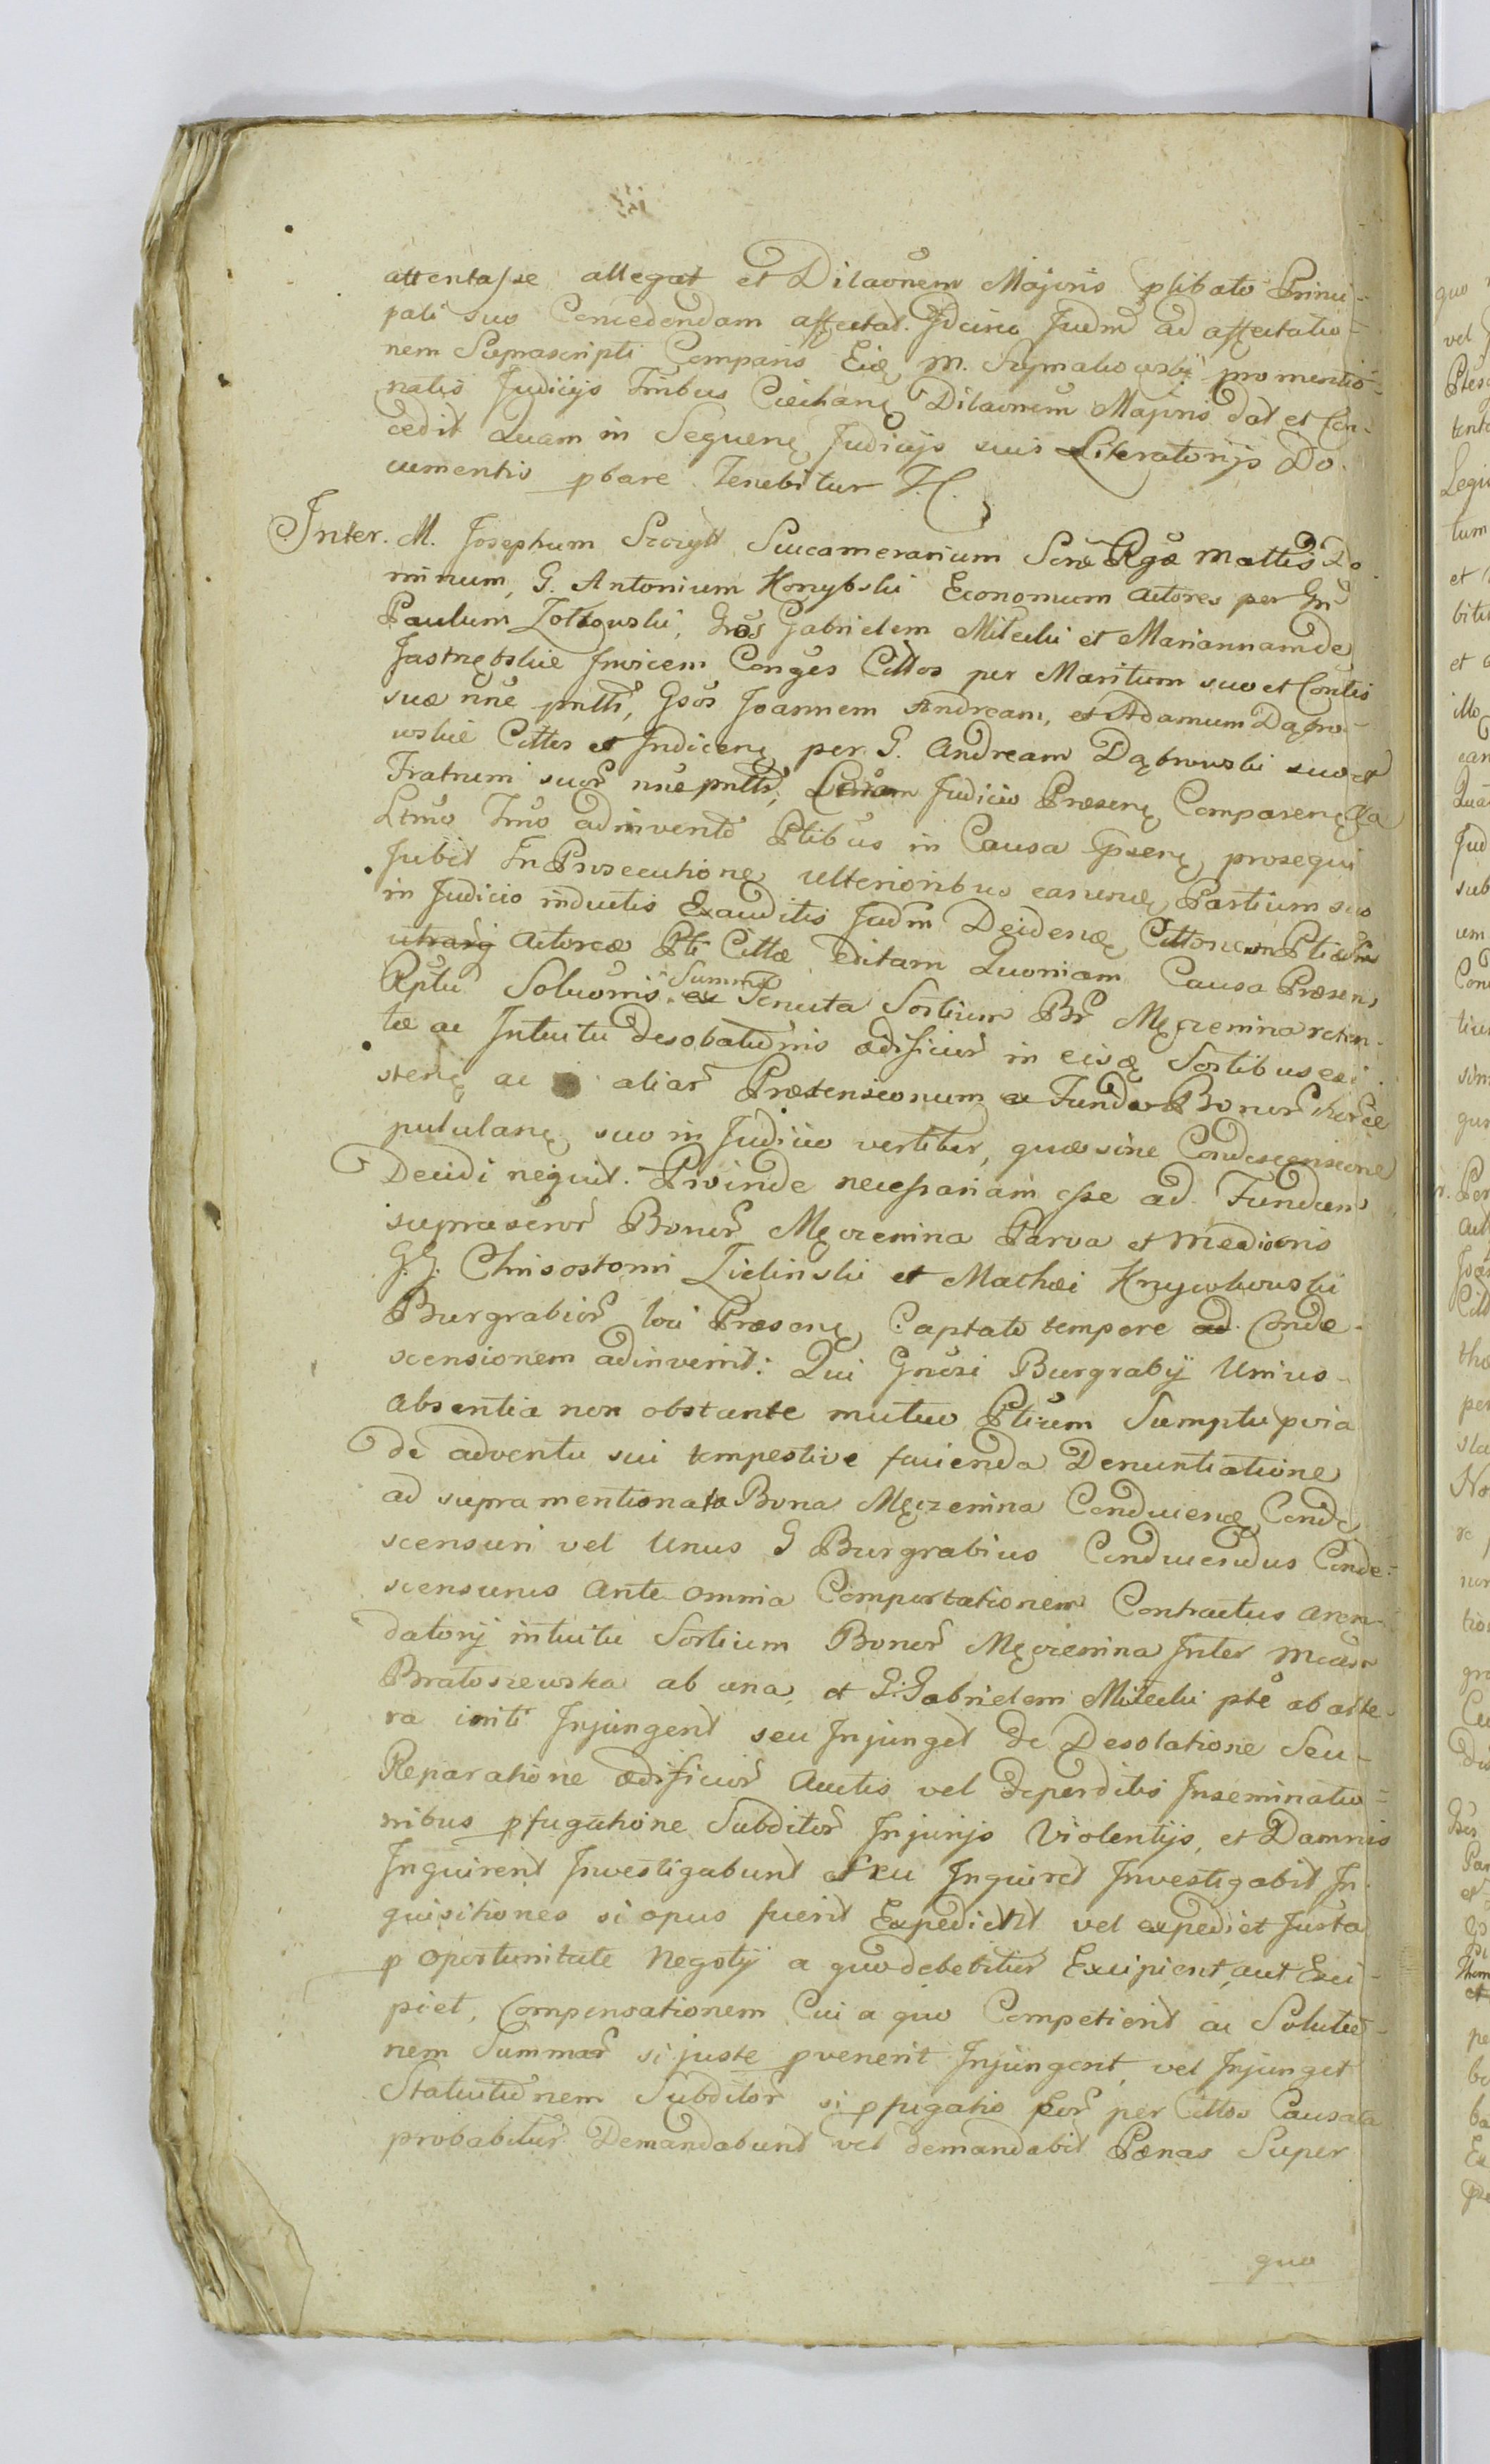 attentasse allegat et Dilaõnem Majoris plibato Princi-
pali suo Concedendam affectat. Idcirco Judm ad affectatio-
nem Suprascripti Comparis Eidę M. Szymakowski pro mentio-
natis Judicijs Trnibus Ciechanę Dilaonem Majoris dat et Con-
cedit Quam in Sequenę Judicijs suis Literatorijs Do-
cumentis pbare tenebitur
Inter. M. Josephum Succamerarium Rgæ Mattis Do
minum, G. Antonium Konybski Economum Actores per Gñ
Paulum Zołtowski, Gños Gabrielem Milecki et Mariannam de
Jastrzębskie Invicem Conges Cittos per Maritum suo et Contis
suæ nñe pntti, Gsos Joannem Andream, et Adamum Dąbro-
wskie Cittos et Indicenę per G. Andream Dąbrowski suo et
Fratrum suor nñe pntti, Judicio Præsenę Comparenę
Ltmo Tmo adinvento Ptibus in Causa Psenę prosequi
Jubet In Prosecutione ulterioribus earundę Partium suo
in Judicio inductis Exauditis Judm Decidenę Cittonem
utrasq Actoreæ Pti Cittæ editam Quoniam Causa Præsens
Rptu Soluonis Summæ ex Tenuta Sortium Br Męczenina reten-
tæ ac Intuitu Desolationis ædificior in eisdę Sortibus exi-
stenę ac aliar Prætensionum ex Fundo Bonor
pululanę suo in Judicio vertitur, quæ sine Condescensione
Decidi nequit. Proinde necessariam esse ad Fundum
suprascror Bonor Męczenina Parva et Mediocris
G.G. Chrisostomi Zielinski et Mathæi Knywkowski
Burgrabior loci Præsenę Captato tempore ad Conde-
scensionem adinvenit: Qui Gnosi Burgrabij Unius
absentia non obstante mutuo Ptium Sumptu pvia
de adventu sui tempestive facienda Denuntiatione
ad supramentionata Bona Męczenina Conducenę Conde
scensuri vel Unus G Burgrabius Conducendus Conde-
scensurus Ante omnia Comportationem Contractus Aren-
datorij intuitu Sortium Bonor Męczenina Inter
Bratoszewska ab una, et G. Gabrielem Milecki pte ab alte-
ra initi Injungent seu Injunget de Desolatione Seu
Reparatione ædificior Auctis vel Deperditis Inseminatio-
nibus pfugatione Subditor Injurijs Violentijs, et Damnis
Inquirent Investigabunt seu Inquiret Investigabit In-
quisitiones si opus fuerit Expedient vel expediet Justa
p oportunitate Negotij a quo debebitur Excipient, aut Exci-
piet, Compensationem Cui a quo Competierit ac Solutio-
nem Summar si juste pvenerit Injungent, vel Injunget
Statuitionem Subditor si pfugatio per Cittos Causata
probabitur Demandabunt vel demandabit Pænas Super
quo